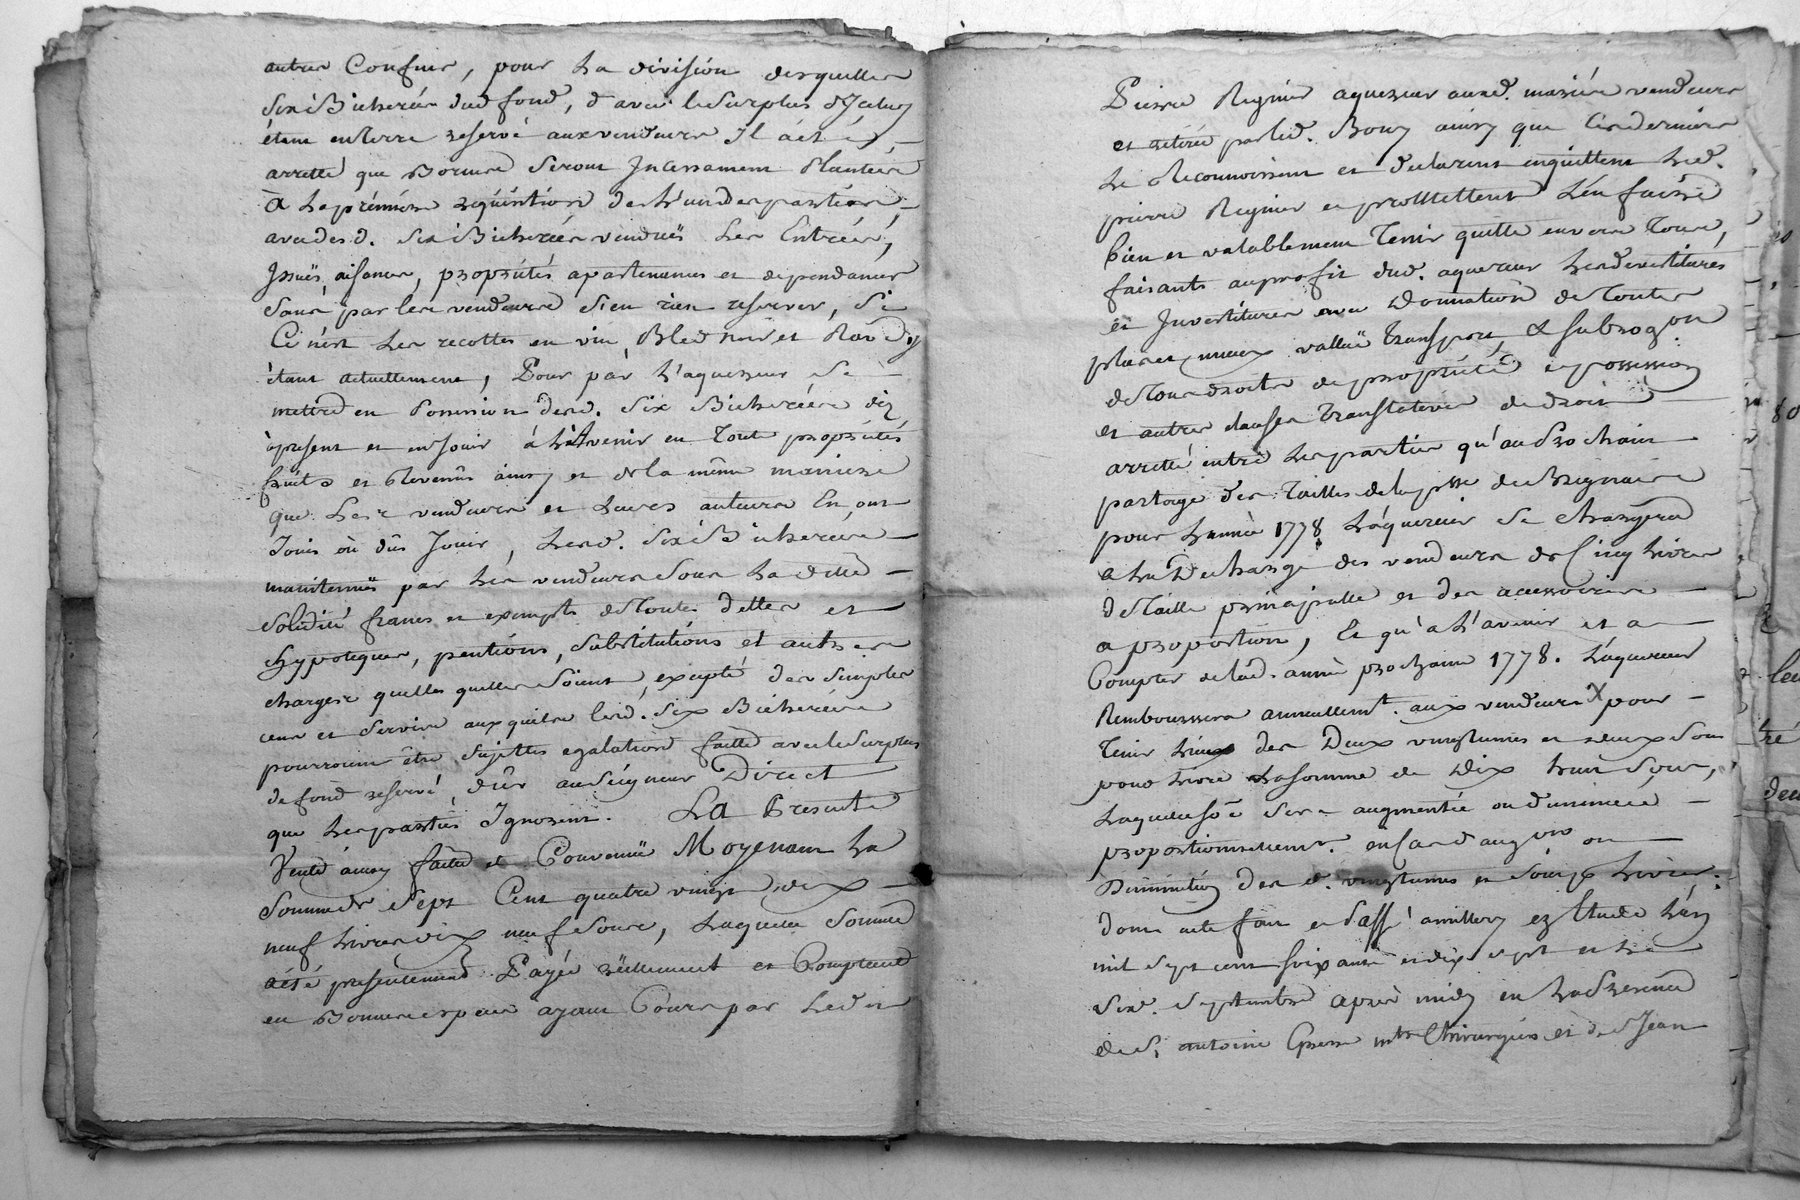 autres Confins, pour La division desquelles
six Bicherées dud fond, d'avec le surplus d'Jceluy
étant en terre reservé aux vendeurs Il a été
arretté que Bornes seront Jncessament Plantées
à La prémiere réquisition de L'une des parties
avec lesd. six Bicherées vendües Les Entrées,
Jssuës, aisances, propriétés apartenances et dependances
sans par les vendeurs s'en rien reserver, si
Ce n'est Les recoltes en vin, Bled noir et
étant actuellement, Pour par L'aquereur se
mettre en Possession desd. six Bicherées dez
àpresent et en Jouir à L'Avenir en toute propriétés
fruits et Revenûs ainsy et de la même maniere
que Lesd vendeurs et Leurs auteurs En ont
Jouis où dûs Jouir, Lesd. six Bicherées
maintenuës par Les vendeurs sous La ditte
solidité franes et exempts de toutes dettes et
hypoteques, pentions, substitutions et autres
charges quelles quelles soient, excepté des simples
cens et servis auxquels lesd. six Bicherées
pourroient être sujettes egalation faitte avec le surplus
de fond reservé, dûs au seigneur Direct
que Les parties Ignorent. La Presente
Vente ainsy faitte et Convenuë Moyenant La
somme de sept Cent quatre vingt dix
neuf Livres dix neuf sous, Laquelle somme
a été presentement Payée réellement et Comptant
en Bonnes especes ayant Cours par Ledit
Pierre Reginer aquereur auxd. mariés vendeurs
et retirée par led. Bouy ainsy que Ces derniers
Le Reconnoissent et declarent enquittent Led.
pierre Reginer et promettent L'en faire
bien et valablement tenir quitte envers tous,
faisants au profit dud. aquereur Les devestitures
et Jnvestitures avec Donnation de toutes
places mieux vallüe transport, & subrogon
de tous droits de propriété et possession
et autres clauses translatives de droit
arretté entre Les parties qu'au Prochain
partage des tailles de la psse de
pour L'année 1778 L'aquereur se chargera
a La Decharge des vendeurs de Cinq Livres
de taille prinsipalle et des accessoires
a proportion, Et qu'a L'avenir et a
Compter de lad. année prochaine 1778. L'aquereur
Remboursera annuellemt. aux vendeurs X pour
tenir Lieu des Deux vingtiemes et deux sous
pour Livre La somme de Dix huit sous,
Laquelle sôe sera augmentée ou diminuée
proportionnellement en cas d'augon ou
Diminution des d. vingtiemes et sous p Livres.
dont acte fait et Passé a millery ez Etude L'an
mil sept cent soixante et dix sept et Le
six septembre après midy en La Presence
de sr antoine mtre Chirurgien et de sr Jean